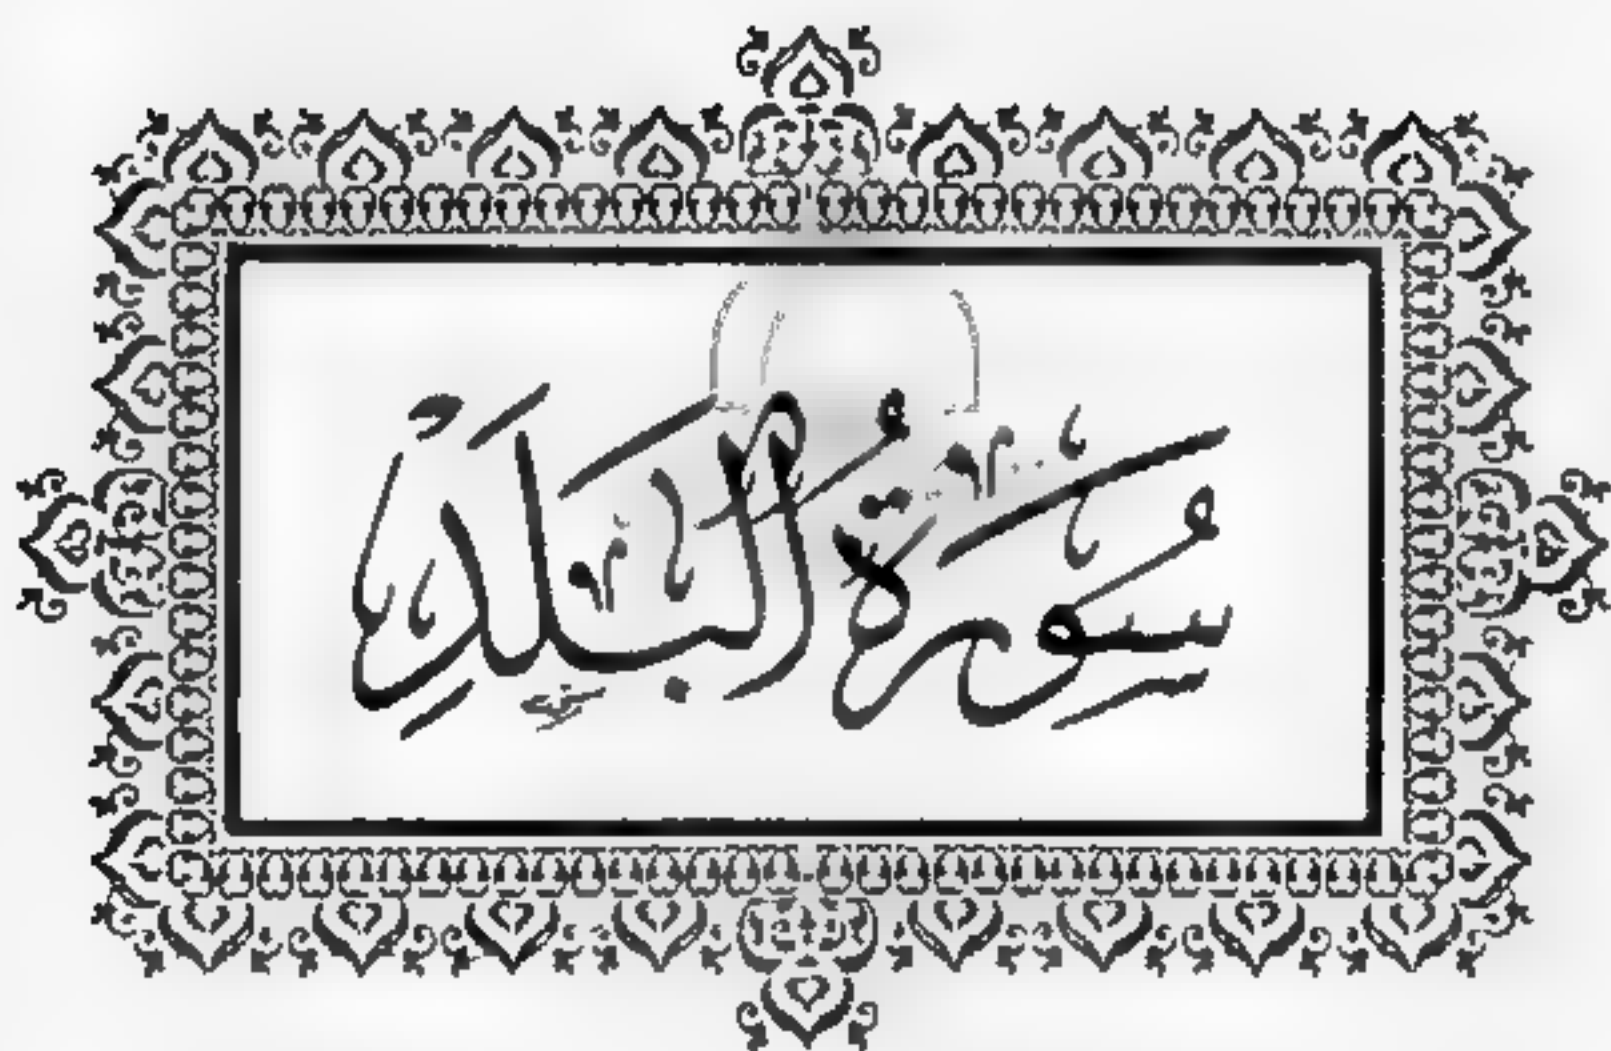 سُورَةُ الْبَلَدِ